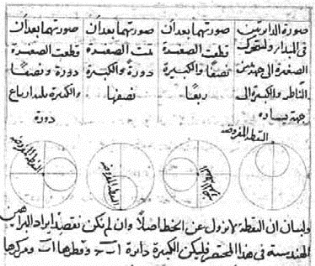 صورة الدايرتين
في المبدا ولتتحرك
الصغيرة الى جهة يمين
الناظر والكبيرة الى
جهة يساره
صورتهما بعد أن
قطعت الصغيرة
نصفًا والكبيرة
ربعًا
صورتهما بعد أن
تمت الصغيرة
دورة والكبيرة
نصفها
صورتهما بعد أن
قطعت الصغيرة
دورة ونصفًا
والكبيرة ثلثة ارباع
دورة
النقطة المفروضة
النقطة المفروضة
النقطة المفروضة
ولبيان ان النقطة لا تزول عن الخط اصلا وان لم نكن نقصد ايراد البراهين
الهندسية في هذا المختصر فليكن الكبيرة دائرة وقطرها ا ب ومركزها